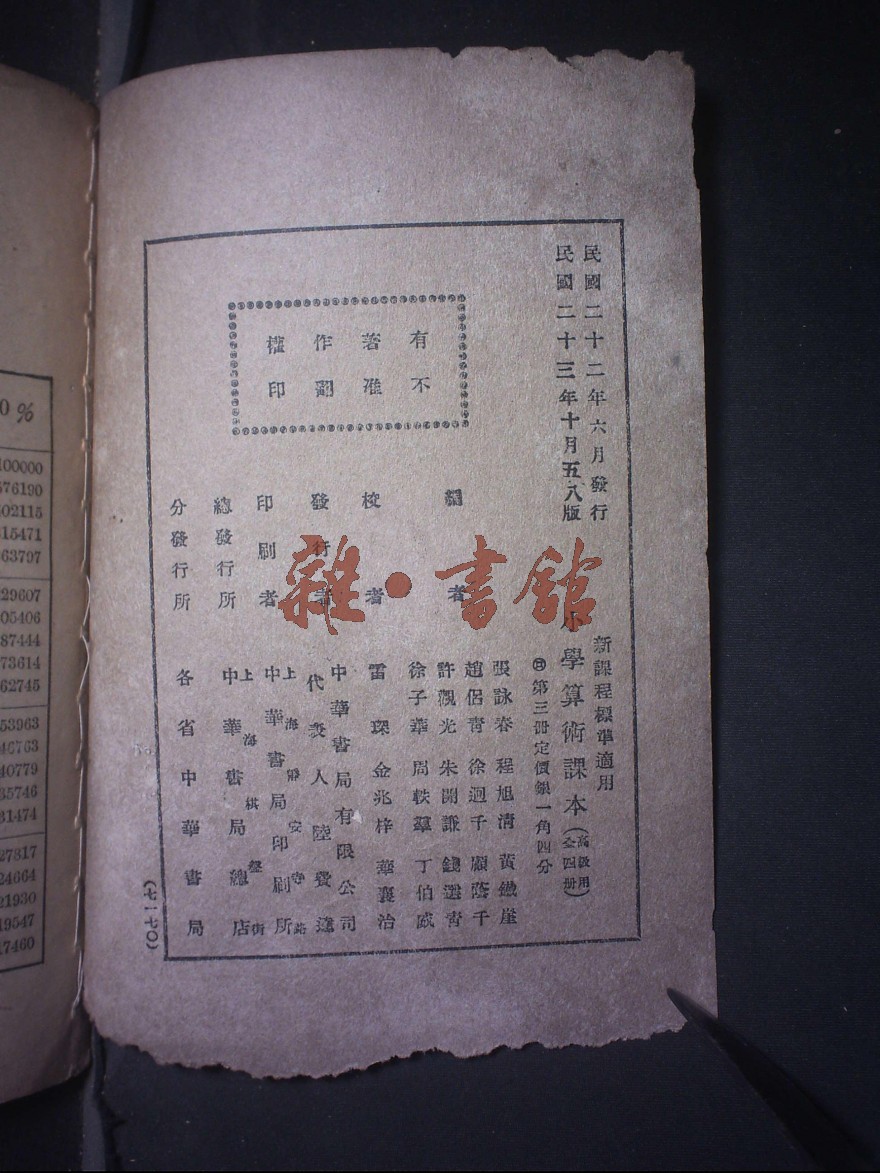 民國二十二年六月發行
民國二十三年十月五八版
有著作權
不准翻印
新課程標準適用
小學算術課本(高級用 全四冊)
第三冊定價銀一角四分
編者
張詠春 程旭清 黃緻崖
趙侶青 徐迥千 顧蔭千
許觀光 朱開謙 錢選青
徐子華 周軼羣 丁伯威
校者
雷琛 金兆梓 華襄治
發行者
中華書局有限公司
代表人 陸費逵
印刷者
上海靜安寺路
中華書局印刷所
總發行所
上海棋盤街
中華書局總店
分發行所
各省中華書局
(七一七〇)
雜·書館
0%
100000
576190
02115
15471
63797
29607
05406
87444
73614
62745
53963
46763
40779
35746
31474
27817
24664
21930
19547
17460